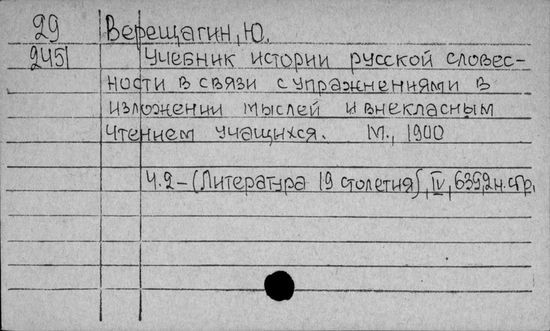 29 Верещагин, Ю.
2451 Учебник истории русской словес-
ности в связи с упражнениями в
изложении мыслей и внекласным
чтением учащихся. М., 1900
Ч.2 - (Литература 19 столетия), IV, 639, 2 н. стр.